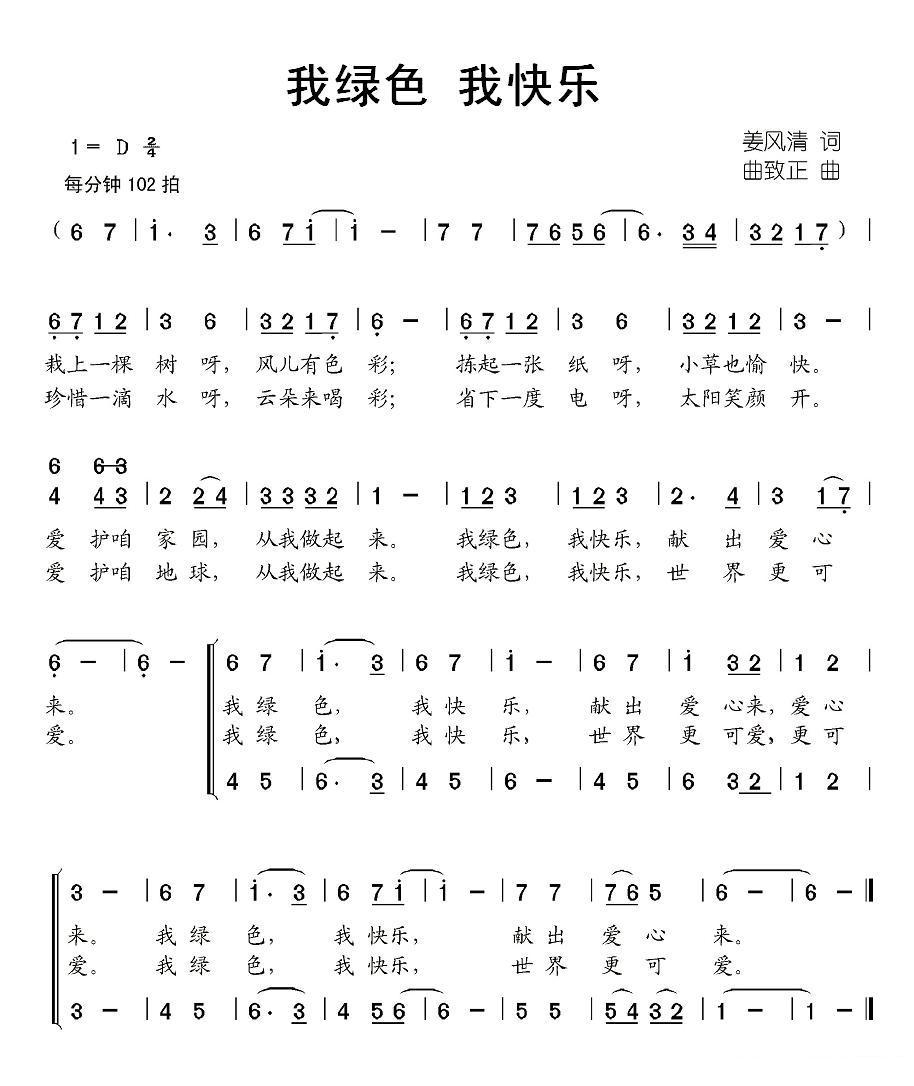 我绿色 我快乐
1 = D 2/4
姜风清 词
每分钟 102 拍
曲致正 曲
( 6 7 | i · 3 | 6 7 i | i - | 7 7 | 7 6 5 6 | 6 · 3 4 | 3 2 1 7 ) |
6 7 1 2 | 3 6 | 3 2 1 7 | 6 - | 6 7 1 2 | 3 6 | 3 2 1 2 | 3 - |
栽上一棵 树 呀, 风儿有色 彩; 拣起一张 纸 呀, 小草也愉 快。
珍惜一滴 水 呀, 云朵来喝 彩; 省下一度 电 呀, 太阳笑颜 开。
6 6 3
4 4 3 | 2 2 4 | 3 3 3 2 | 1 - | 1 2 3 | 1 2 3 | 2 · 4 | 3 1 7 |
爱 护咱 家 园, 从我做起 来。 我绿色, 我快乐, 献 出 爱 心
爱 护咱 地 球, 从我做起 来。 我绿色, 我快乐, 世 界 更 可
6 - | 6 - 6 7 | i · 3 | 6 7 | i - | 6 7 | i 3 2 | 1 2 |
来。 我 绿 色, 我 快 乐, 献 出 爱 心来, 爱 心
爱。 我 绿 色, 我 快 乐, 世 界 更 可爱, 更 可
4 5 | 6 · 3 | 4 5 | 6 - | 4 5 | 6 3 2 | 1 2 |
3 - | 6 7 | i · 3 | 6 7 i | i - | 7 7 | 7 6 5 | 6 - | 6 - ‖
来。 我 绿 色, 我 快乐, 献 出 爱 心 来。
爱。 我 绿 色, 我 快乐, 世 界 更 可 爱。
3 - | 4 5 | 6 · 3 | 4 5 6 | 6 - | 5 5 | 5 4 3 2 | 1 - | 1 - ‖